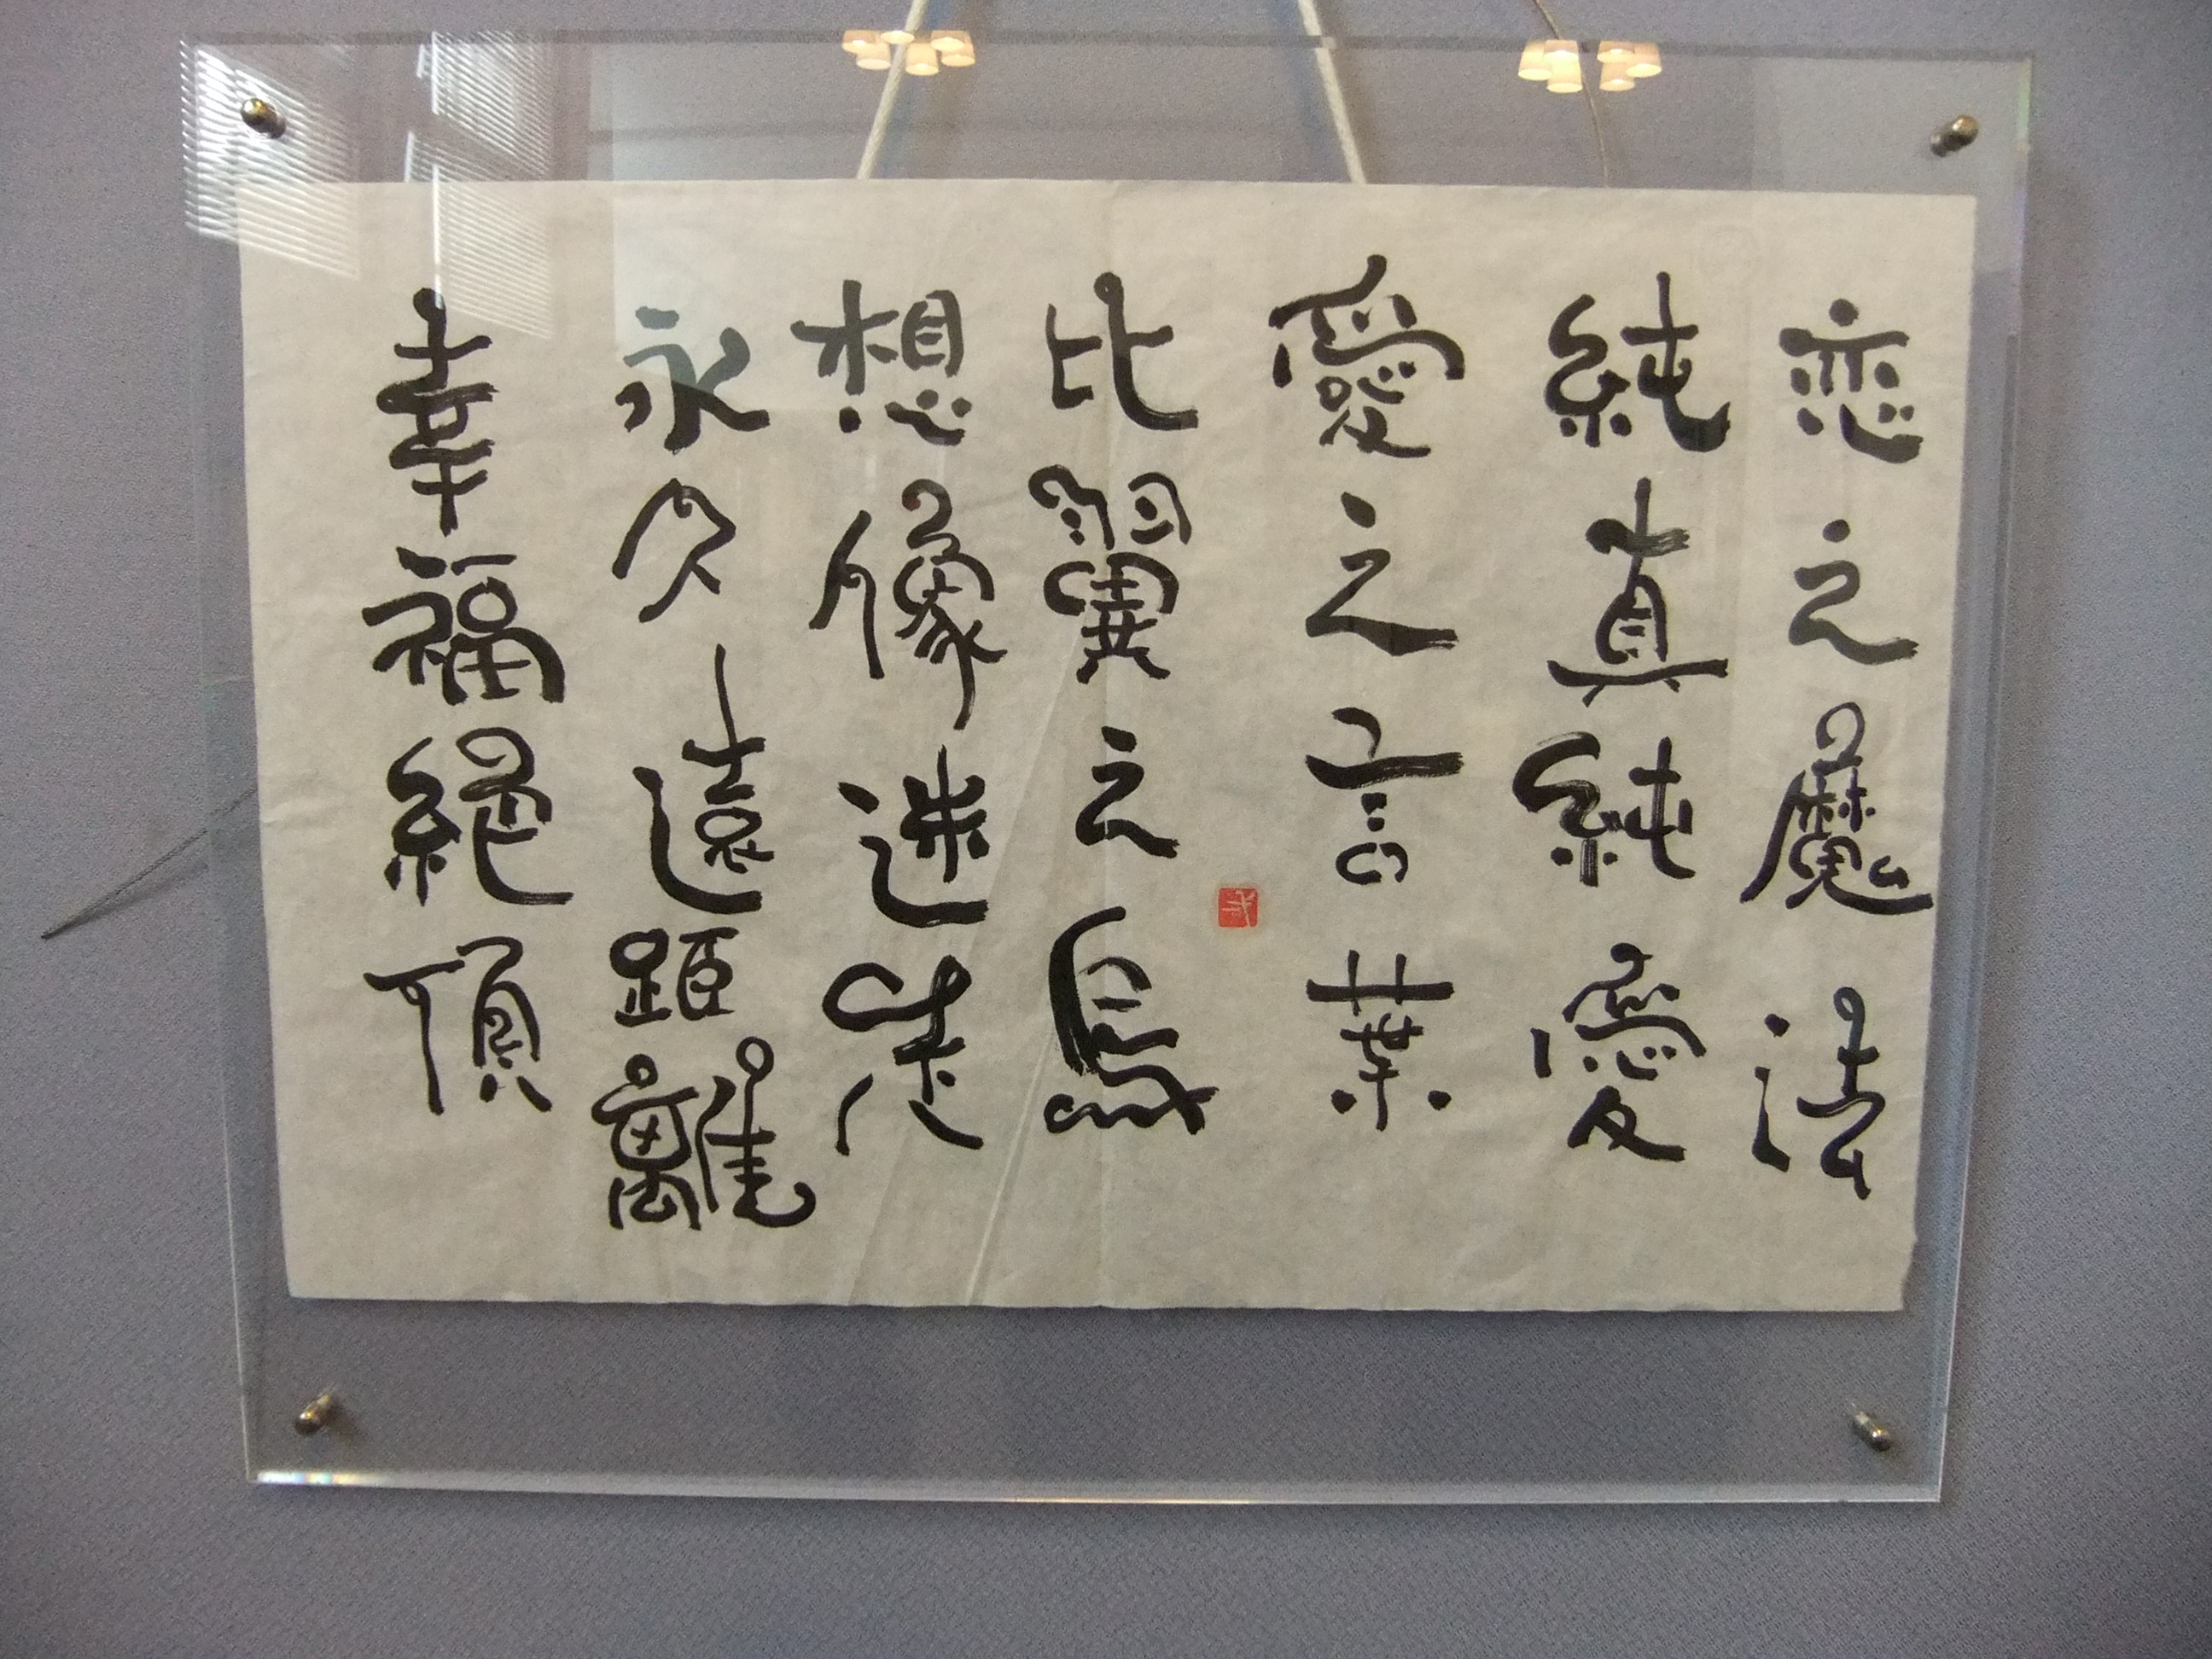 恋之魔法
純真純愛
愛之言葉
比翼之鳥
想像迷走
永久遠距離
幸福絶頂